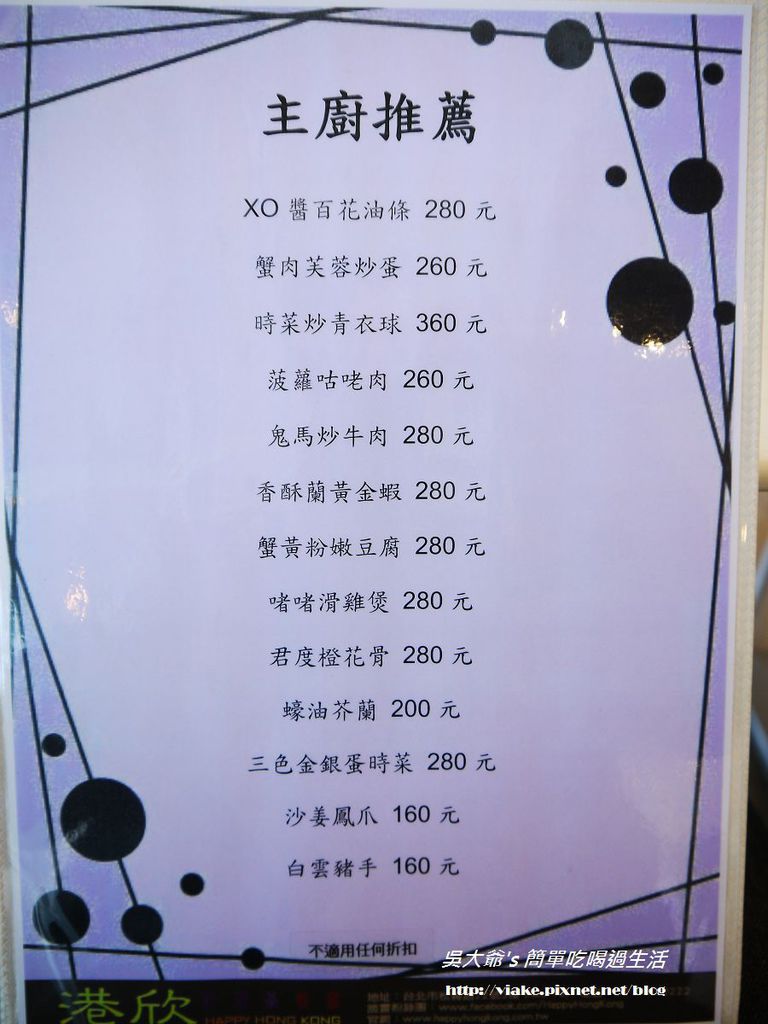 主廚推薦
XO 醬百花油條 280 元
蟹肉芙蓉炒蛋 260 元
時菜炒青衣球 360 元
菠蘿咕咾肉 260 元
鬼馬炒牛肉 280 元
香酥蘭黃金蝦 280 元
蟹黃粉嫩豆腐 280 元
啫啫滑雞煲 280 元
君度橙花骨 280 元
蠔油芥蘭 200 元
三色金銀蛋時菜 280 元
沙姜鳳爪 160 元
白雲豬手 160 元
不適用任何折扣
吳大爺's 簡單吃喝過生活
http://viake.pixnet.net/blog
港欣
HAPPY HONG KONG
www.happyhongkong.com.tw